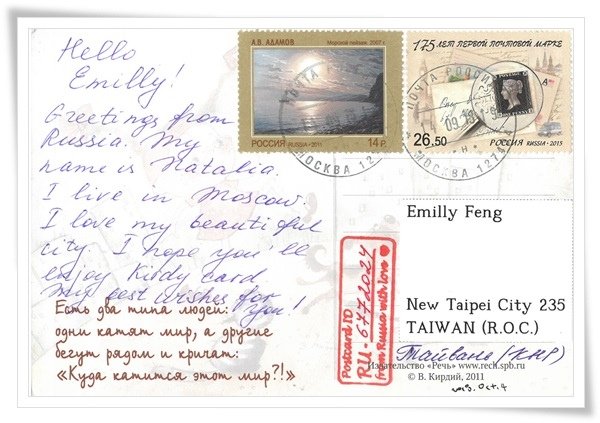 Hello
Emilly!
Greetings from
Russia. My
name is Natalia.
I live in Moscow.
I love my beautiful
city. I hope you'll
enjoy Kirdy card
My best wishes for
you!
Есть два типа людей:
одни катят мир, а другие
бегут рядом и кричат:
«Куда катится этот мир?!»
А.В. АДАМОВ Морской пейзаж. 2007 г.
РОССИЯ RUSSIA • 2011 14 Р.
175 ЛЕТ ПЕРВОЙ ПОЧТОВОЙ МАРКЕ
26.50 РОССИЯ RUSSIA • 2015
ПОЧТА РОССИИ
МОСКВА 127
Postcard ID
RU-6772024
from Russia with love
Emilly Feng
New Taipei City 235
TAIWAN (R.O.C.)
Тайвань (КНР)
Издательство «Речь» www.rech.spb.ru
© В. Кирдий, 2011